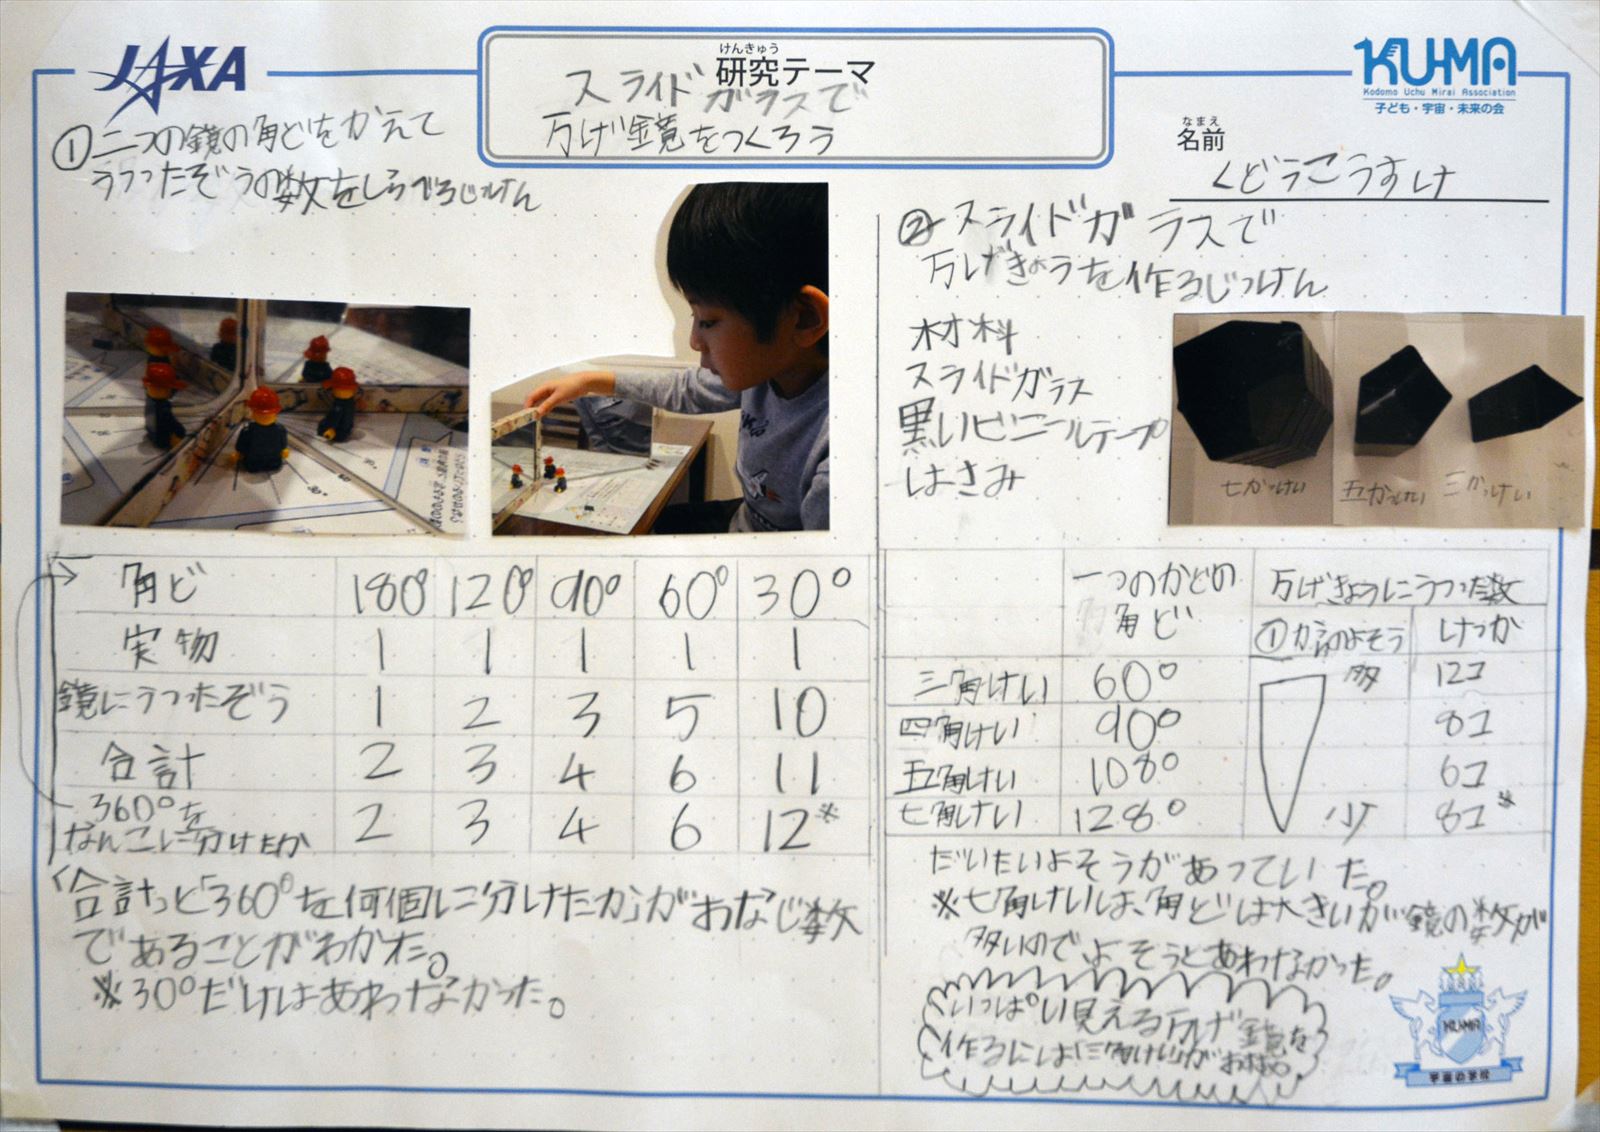 JAXA
けんきゅう
研究テーマ
スライドガラスで
万げ鏡をつくろう
KU-MA
Kodomo Uchu Mirai Association
子ども・宇宙・未来の会
なまえ
名前
くどうこうすけ
①二つの鏡の角どをかえて
うつったぞうの数をしらべるじっけん
角ど 180° 120° 90° 60° 30°
実物 1 1 1 1 1
鏡にうつったぞう 1 2 3 5 10
合計 2 3 4 6 11
360°を
なんこに分けたか 2 3 4 6 12※
「合計」と「360°を何個に分けたか」がおなじ数
であることがわかった。
※30°だけはあわなかった。
②スライドガラスで
万げきょうを作るじっけん
材料
スライドガラス
黒いビニールテープ
はさみ
七かっけい 五かっけい 三かっけい
一つのかどの
角ど
万げきょうにうつった数
①からのよそう けっか
三角けい 60° 多 12コ
四角けい 90° 8コ
五角けい 108° 6コ
七角けい 128° 少 8コ※
だいたいよそうがあっていた。
※七角けいは、角どは大きいが鏡の数が
多いのでよそうとあわなかった。
いっぱい見える万げ鏡を
作るには「三角けい」がお
KU-MA